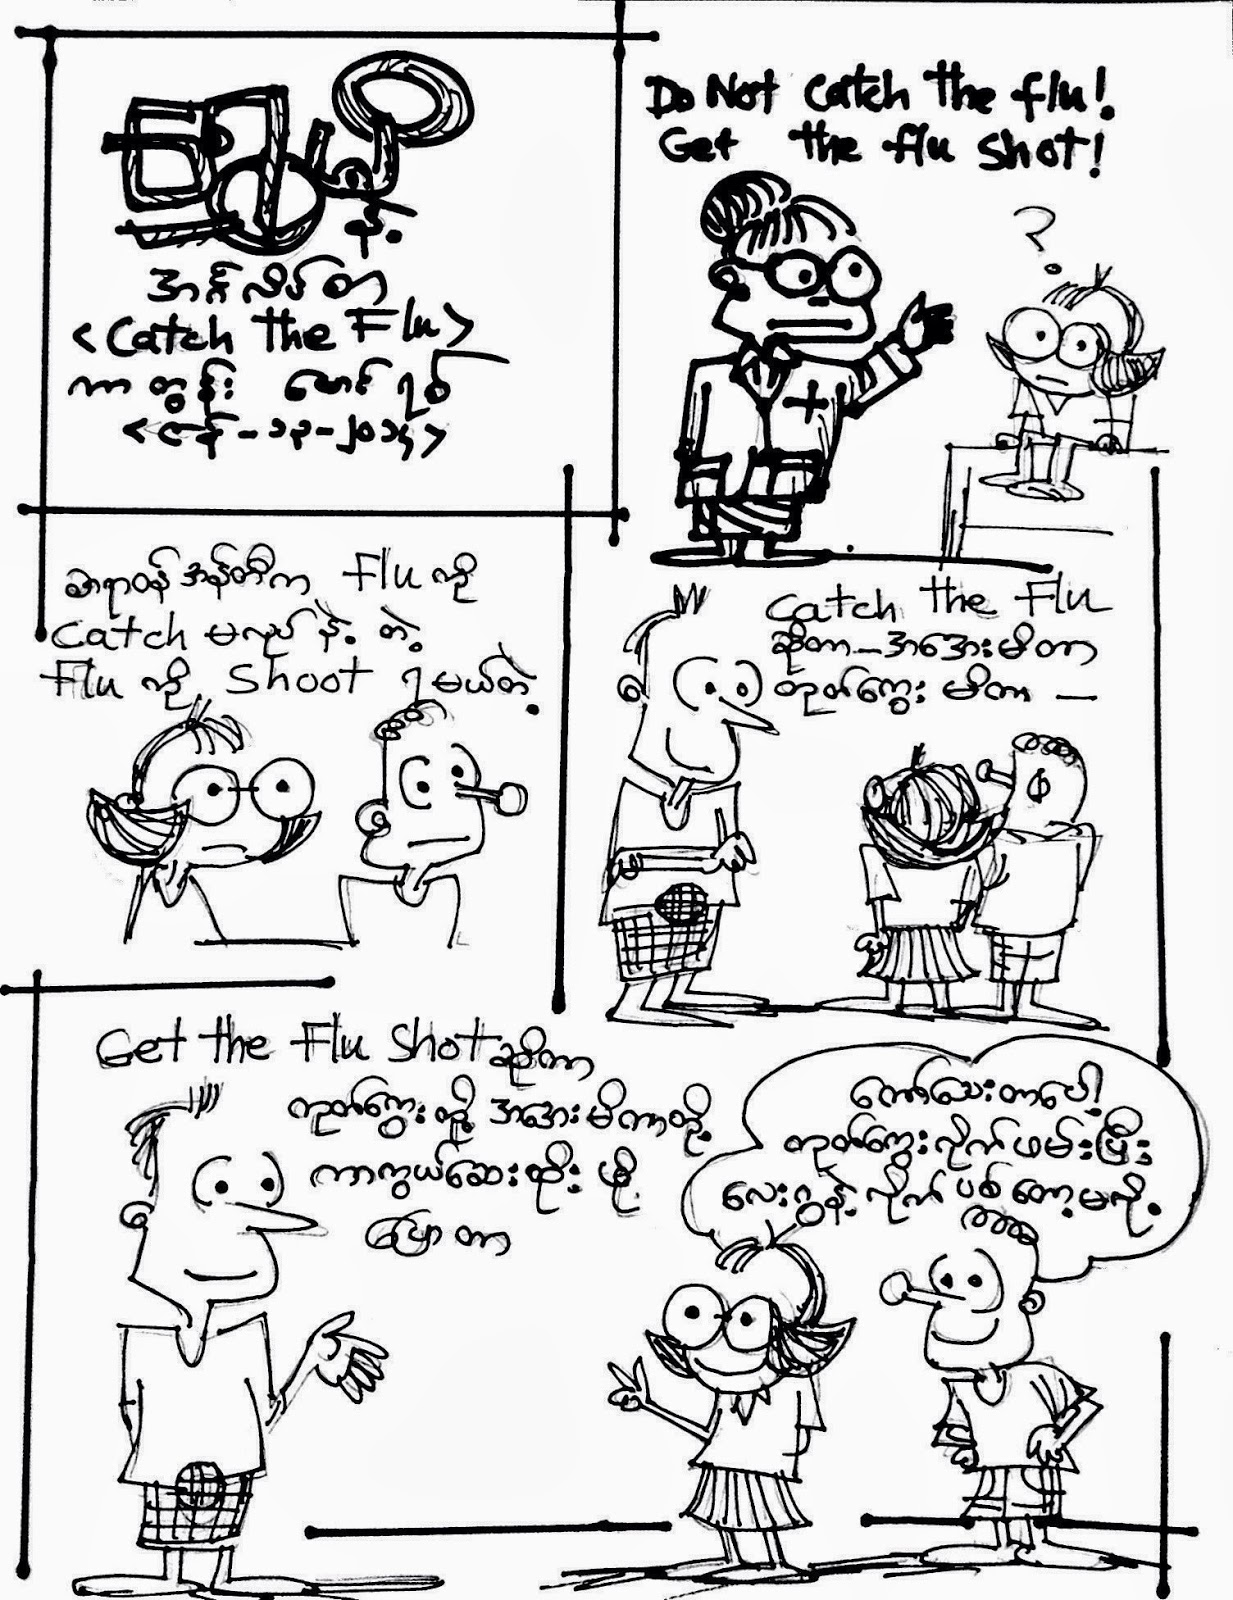 အင်္ဂလိပ်စာ
<Catch the Flu>
ကာတွန်း မောင်ရစ်
<ဇန် - ၁၃ - ၂၀၁၄>
Do Not catch the flu!
Get the flu shot!
?
ဆရာဝန်အန်တီက Flu ကို
catch မလုပ်နဲ့ တဲ့
Flu ကို shoot ရမယ်တဲ့
catch the Flu
ဆိုတာ - အအေးမိတာ
တုပ်ကွေး မိတာ -
Get the Flu shot ဆိုတာ
တုပ်ကွေးတို့ အအေးမိတာတို့
ကာကွယ်ဆေးထိုး ဖို့
ပြောတာ
တော်သေးတာပေါ့
တုပ်ကွေးလိုက်ဖမ်းပြီး
လေးဂွနဲ့ လိုက်ပစ်တော့မလို့